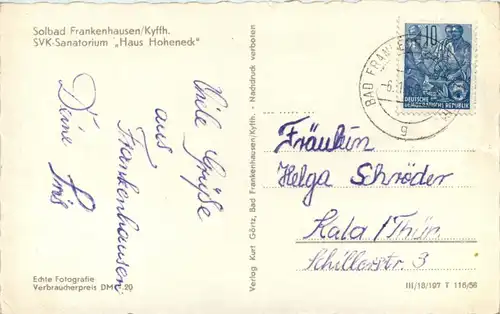 Solbad Frankenhausen/Kyffh.
SVK-Sanatorium „Haus Hoheneck"
Viele Grüße
aus
Frankenhausen
Deine
Echte Fotografie
Verbraucherpreis DM 0.20
Verlag Kurt Görtz, Bad Frankenhausen/Kyffh. - Nachdruck verboten
10
DEUTSCHE
DEMOKRATISCHE REPUBLIK
BAD FRAN
g
Fräulein
Helga Schröder
Kala/Thür.
Schillerstr. 3
III/18/197 T 116/58